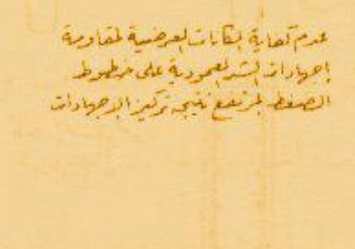 عدم كفاية الكانات العرضية لمقاومة
إجهادات الشد العمودية على خطوط
الضغط المرتفع نتيجة تركيز الإجهادات